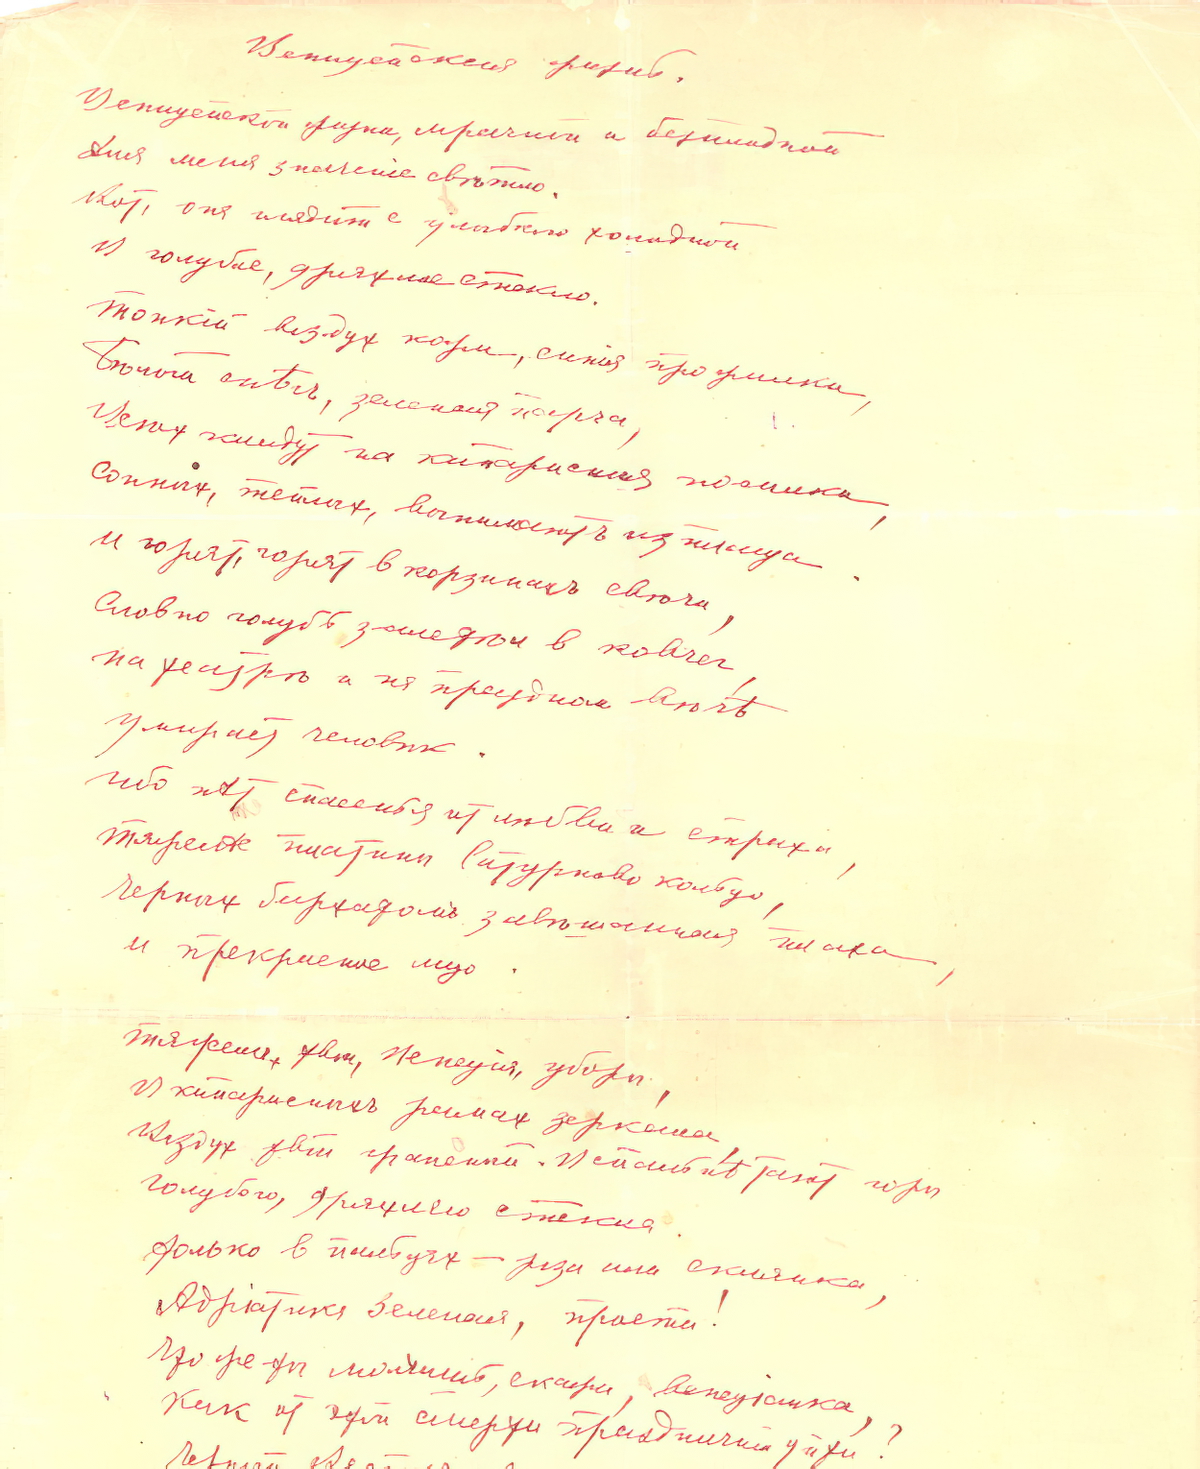 Веницейская жизнь.
Веницейской жизни, мрачной и безплодной
Для меня значение светло.
Вот, она глядит с улыбкою холодной
В голубое, дряхлое стекло.
Тонкій воздух кожи, синія прожилки,
Белый снѣг, зеленая парча,
Всех кладут на кипарисныя носилки,
Сонных, теплых, вынимают из плаща.
И горят, горят в корзинахъ свечи,
Словно голубь залетел в ковчег,
На театре и на праздном вечѣ
Умирает человек.
Ибо нѣт спасенья от любви и страха,
Тяжелѣе платины Сатурново кольцо,
Черным бархатомъ завешанная плаха
И прекрасное лицо.
Тяжелы, твои, Венеція, уборы,
В кипарисныхъ рамах зеркала,
Воздух твой граненый. В спальнѣ тают горы
Голубого, дряхлого стекла.
Только в пальцах — роза или склянка,
Адріатика Зеленая, прости!
Что же ты молчишь, скажи, венеціанка,
Как от этой смерти праздничной уйти?